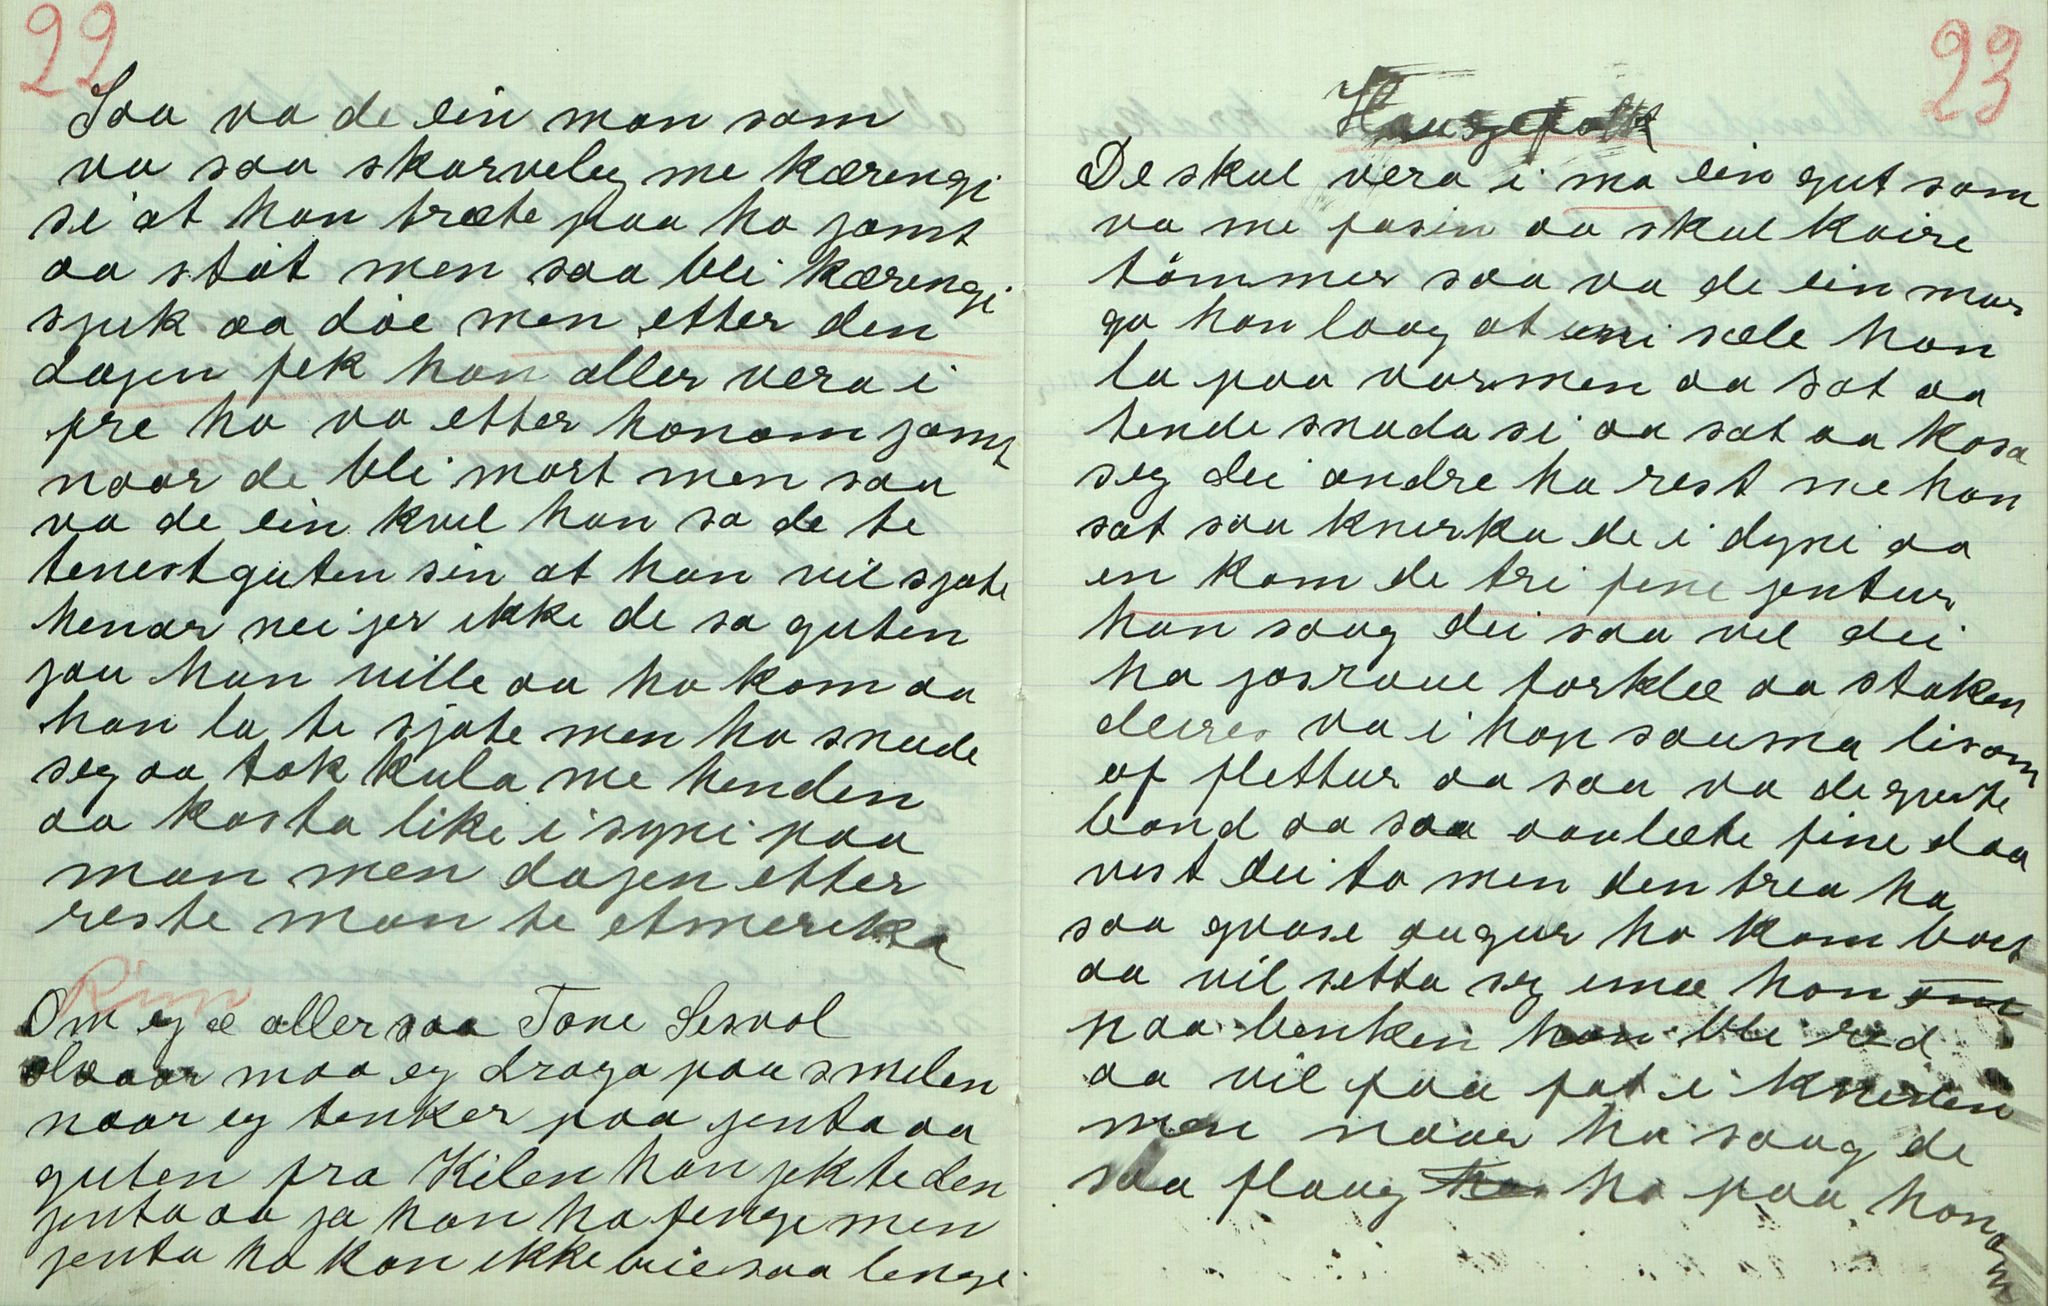 22
Saa va de ein man som
va saa skarveleg me kærengi
si at han træte paa ho jamt
aa støt men saa blei kærengi
sjuk aa døe men etter den
dagen fek han aller vera i
fre ho va etter honom jamt
naar de blei mørt men saa
va de ein kvel han sa de te
tenestguten sin at han vil sjøte
henar nei jer ikke de sa guten
jau han ville aa ho kom aa
han la te sjøte men ho snude
seg aa tok kula me henden
aa kasta like i syni paa
man men dagen etter
reste man te Amereka
Rim
Om eg æ aller saa Tone Sesvol
aa maa eg draga paa smilen
naar eg tenker paa jenta aa
guten fra Kilen han jekte den
jenta aa ja han ha fengi men
jenta ho kan ikke bie saa lenge
23
Haugefolk
De skul vera i ma ein gut som
va me fasin aa skul køire
tømmer saa va de ein mor
go han laag at uni sæle han
la paa varmen aa sat aa
tende snuda si aa sat aa kosa
seg dei andre ha rest me han
sat saa knirka de i dyni aa
en kom de tri fine jentur
han saag dei saa vel dei
ha josraue forklæ aa staken
deires va i hop sauma lisom
af flettur aa saa va de guste
bond aa saa aaulæte fine daa
vest dei to men den trea ha
saa gruuse augur ho kom bort
aa vil setta seg imæ han
paa benken han blei red
aa vil faa fat i kneven
men naar ho saag de
saa flaug ho paa honom